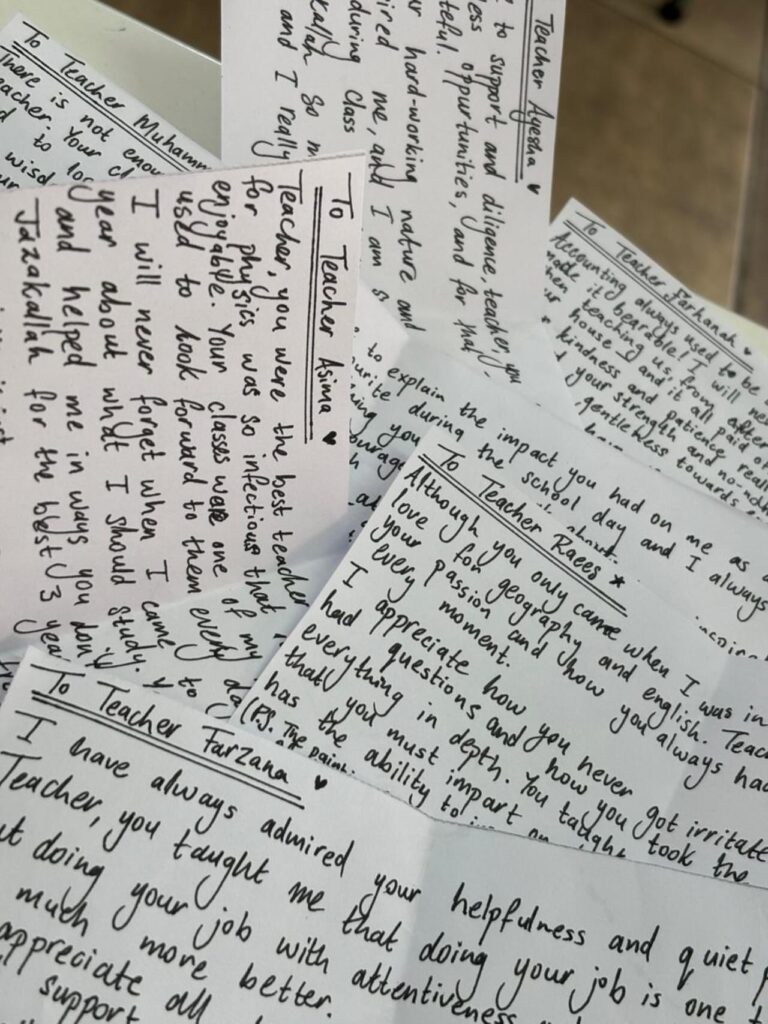 To Teacher Muhamm
There is not enou
eacher. Your cl
d to lo
wisd
Teacher Ayesha ♥
to support and diligence, teacher, you
less oppurtunities, and for that
teful.
ur hard-working nature and
ired me, and I am s
during class
kallah so m
and I really
To Teacher Asima ♥
Teacher, you were the best teacher
for physics was so infectious that
enjoyable. Your classes were one of my
used to look forward to them every da
I will never forget when I came to
year about what I should study.
and helped me in ways you don
Jazakallah for the best 3 yea
To Teacher Farhanah ♥
Accounting always used to be
made it bearable! I will ne
when teaching us, from after
ur house - and it all paid of
kindness and patience reall
d your strength and no-noth
gentleness towards
to explain the impact you had on me as a
urite during the school day and I always
ving you
ourage
To Teacher Raees ★
Although you only came when I was in
love for geography and english. Teac
your passion and how you always had
every moment.
I appreciate how you never got irritate
had questions and how you took the
everything in depth. You taught
that you must impart
has the ability to
(P.S. The paint
To Teacher Farzana ♥
I have always admired your helpfulness and quiet
Teacher, you taught me that doing your job is one t
ut doing your job with attentiveness
much more better.
appreciate all
support